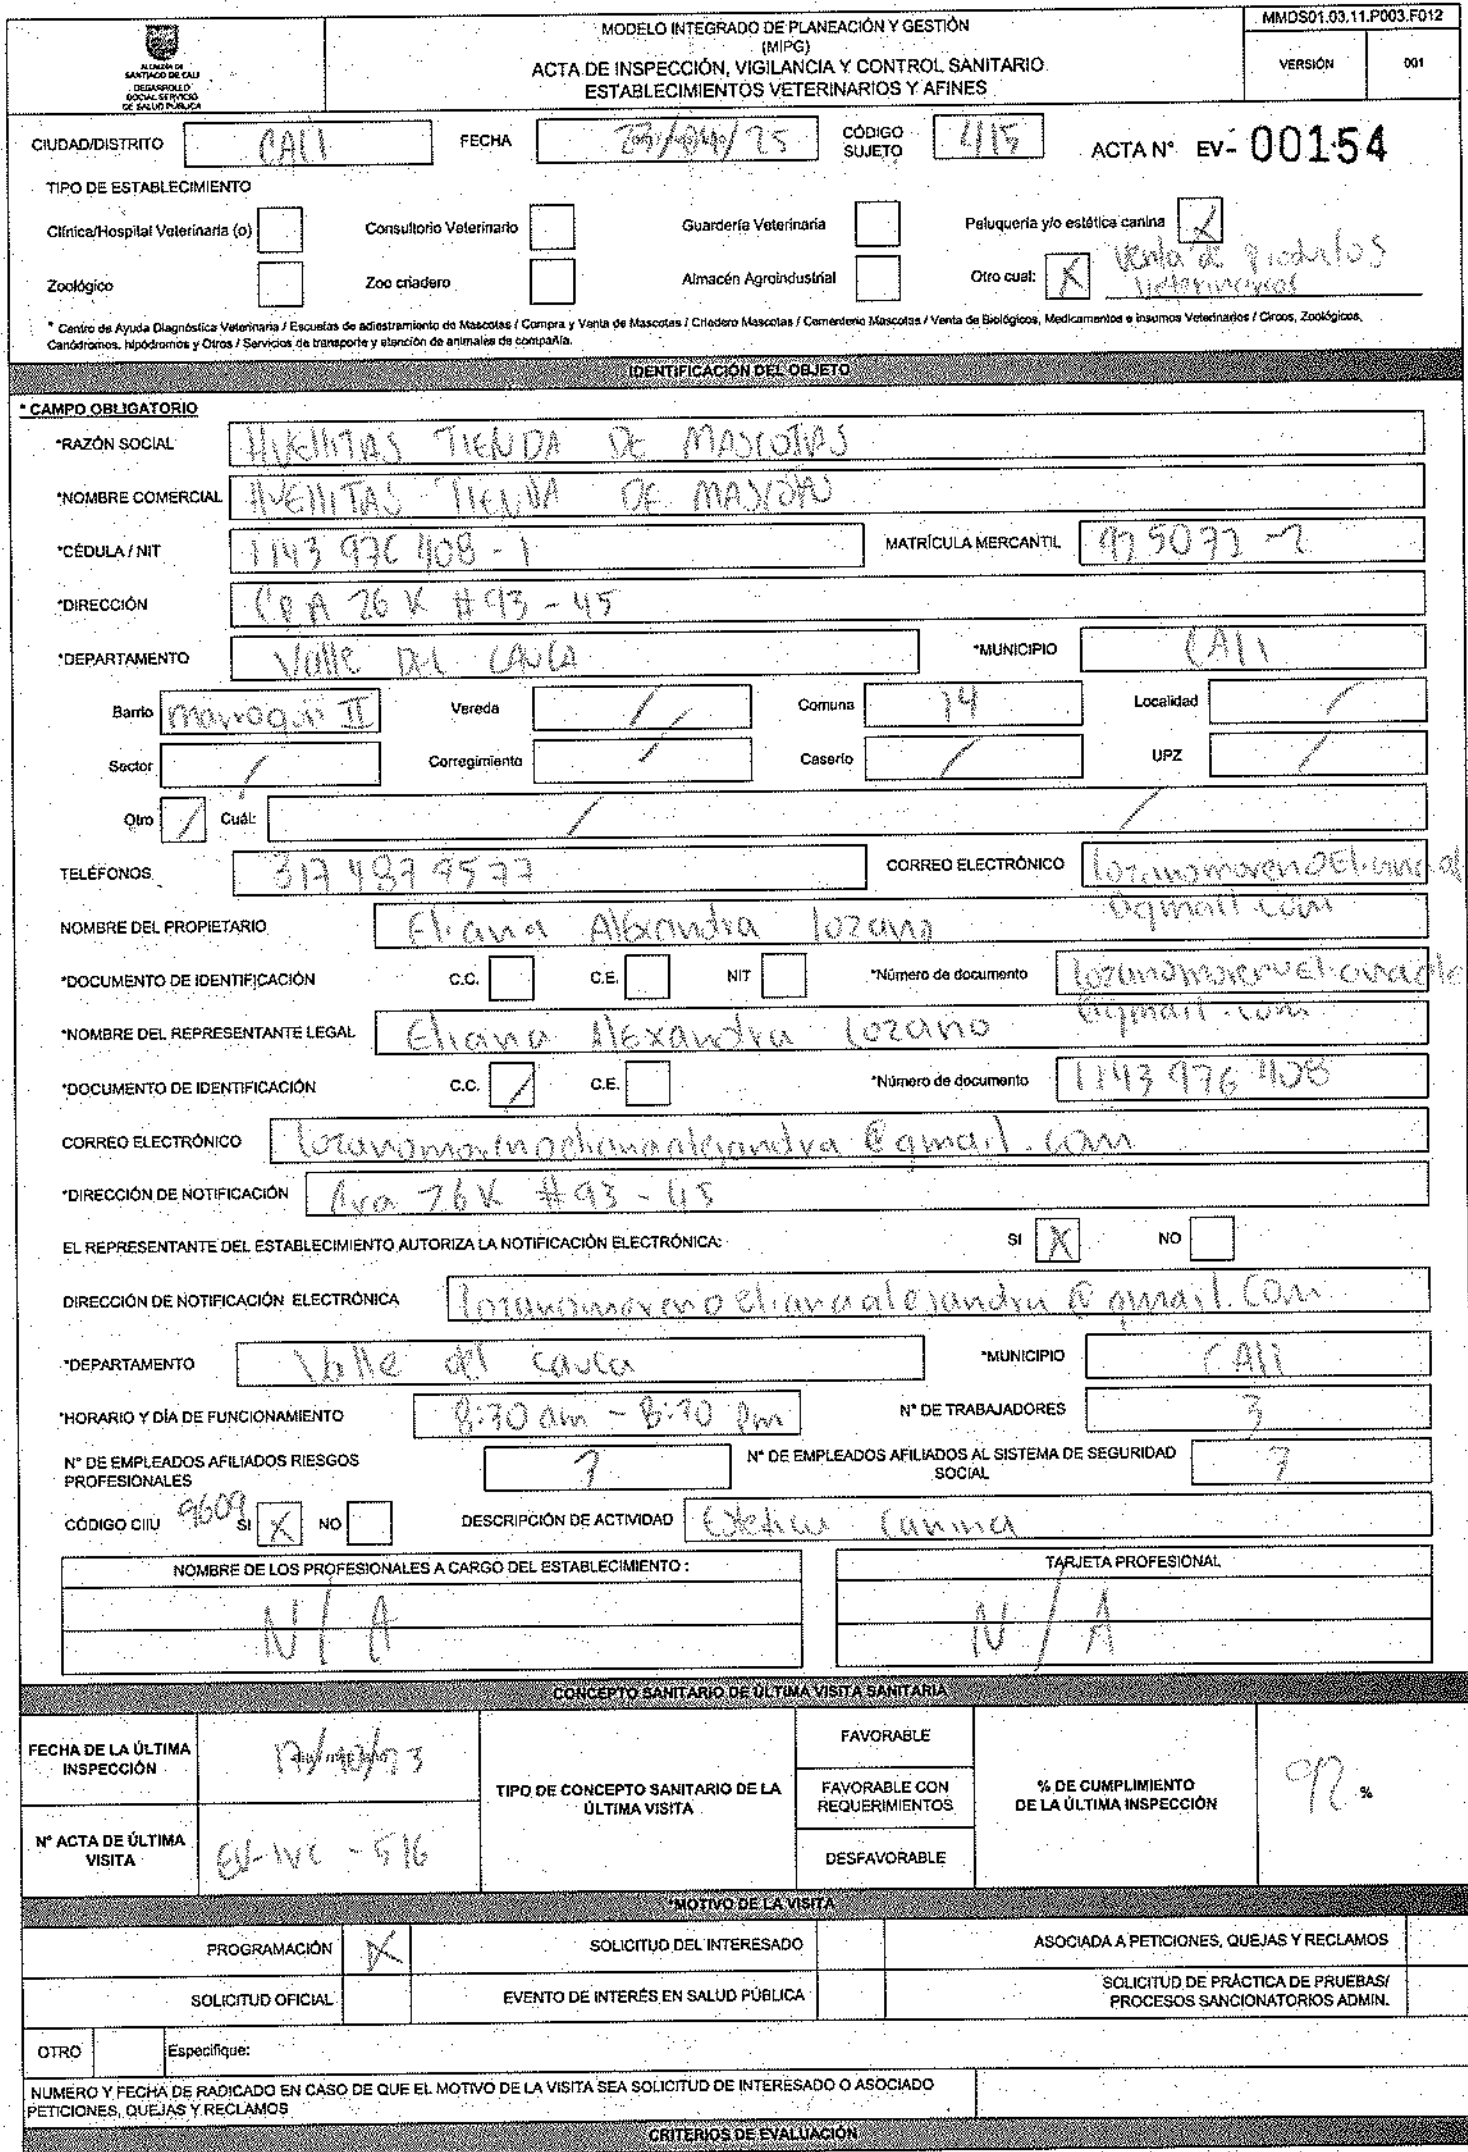 MMDS01.03.11.P003.F012
MODELO INTEGRADO DE PLANEACIÓN Y GESTIÓN
(MIPG)
ACTA DE INSPECCIÓN, VIGILANCIA Y CONTROL SANITARIO
ESTABLECIMIENTOS VETERINARIOS Y AFINES
VERSIÓN 001
ALCALDÍA DE
SANTIAGO DE CALI
DESARROLLO
SOCIAL SERVICIO
DE SALUD PÚBLICA
CIUDAD/DISTRITO CALI FECHA CÓDIGO SUJETO 415 ACTA N° EV- 00154
TIPO DE ESTABLECIMIENTO
Clínica/Hospital Veterinaria (o) Consultorio Veterinario Guardería Veterinaria Peluquería y/o estética canina X
Zoológico Zoo criadero Almacén Agroindustrial Otro cual: X Venta de productos
Veterinarios
* Centro de Ayuda Diagnóstica Veterinaria / Escuelas de adiestramiento de Mascotas / Compra y Venta de Mascotas / Criadero Mascotas / Cementerio Mascotas / Venta de Biológicos, Medicamentos e insumos Veterinarios / Circos, Zoológicos,
Canódromos, hipódromos y Otros / Servicios de transporte y atención de animales de compañía.
IDENTIFICACIÓN DEL OBJETO
* CAMPO OBLIGATORIO
*RAZÓN SOCIAL HUELLITAS TIENDA DE MASCOTAS
*NOMBRE COMERCIAL HUELLITAS TIENDA DE MASCOTAS
*CÉDULA / NIT 1143 976 408 - 1 MATRÍCULA MERCANTIL
*DIRECCIÓN CRA 26 K # 93 - 45
*DEPARTAMENTO Valle DEL CAUCA *MUNICIPIO CALI
Barrio marroquin II Vereda / Comuna 14 Localidad /
Sector / Corregimiento / Caserío / UPZ /
Otro / Cuál: / /
TELÉFONOS CORREO ELECTRÓNICO
@gmail.com
NOMBRE DEL PROPIETARIO Eliana Alexandra lozano
*DOCUMENTO DE IDENTIFICACIÓN C.C. C.E. NIT *Número de documento
@gmail.com
*NOMBRE DEL REPRESENTANTE LEGAL Eliana Alexandra lozano
*DOCUMENTO DE IDENTIFICACIÓN C.C. / C.E. *Número de documento 1143 976 408
CORREO ELECTRÓNICO lozanomorenoelianaalejandra@gmail.com
*DIRECCIÓN DE NOTIFICACIÓN Cra 26 K # 93 - 45
EL REPRESENTANTE DEL ESTABLECIMIENTO AUTORIZA LA NOTIFICACIÓN ELECTRÓNICA: SI X NO
DIRECCIÓN DE NOTIFICACIÓN ELECTRÓNICA lozanomorenoelianaalejandra@gmail.com
*DEPARTAMENTO Valle del cauca *MUNICIPIO CALI
*HORARIO Y DÍA DE FUNCIONAMIENTO 8:30 am - 8:30 pm N° DE TRABAJADORES 3
N° DE EMPLEADOS AFILIADOS RIESGOS PROFESIONALES N° DE EMPLEADOS AFILIADOS AL SISTEMA DE SEGURIDAD SOCIAL
CÓDIGO CIIU 9609 SI X NO DESCRIPCIÓN DE ACTIVIDAD Estetica Canina
NOMBRE DE LOS PROFESIONALES A CARGO DEL ESTABLECIMIENTO : TARJETA PROFESIONAL
N/A N/A
CONCEPTO SANITARIO DE ÚLTIMA VISITA SANITARIA
FECHA DE LA ÚLTIMA INSPECCIÓN
N° ACTA DE ÚLTIMA VISITA EV-IVC - 516
TIPO DE CONCEPTO SANITARIO DE LA ÚLTIMA VISITA
FAVORABLE
FAVORABLE CON REQUERIMIENTOS
DESFAVORABLE
% DE CUMPLIMIENTO DE LA ÚLTIMA INSPECCIÓN 92 %
*MOTIVO DE LA VISITA
PROGRAMACIÓN X SOLICITUD DEL INTERESADO ASOCIADA A PETICIONES, QUEJAS Y RECLAMOS
SOLICITUD OFICIAL EVENTO DE INTERÉS EN SALUD PÚBLICA SOLICITUD DE PRÁCTICA DE PRUEBAS/ PROCESOS SANCIONATORIOS ADMIN.
OTRO Especifique:
NUMERO Y FECHA DE RADICADO EN CASO DE QUE EL MOTIVO DE LA VISITA SEA SOLICITUD DE INTERESADO O ASOCIADO
PETICIONES, QUEJAS Y RECLAMOS
CRITERIOS DE EVALUACIÓN